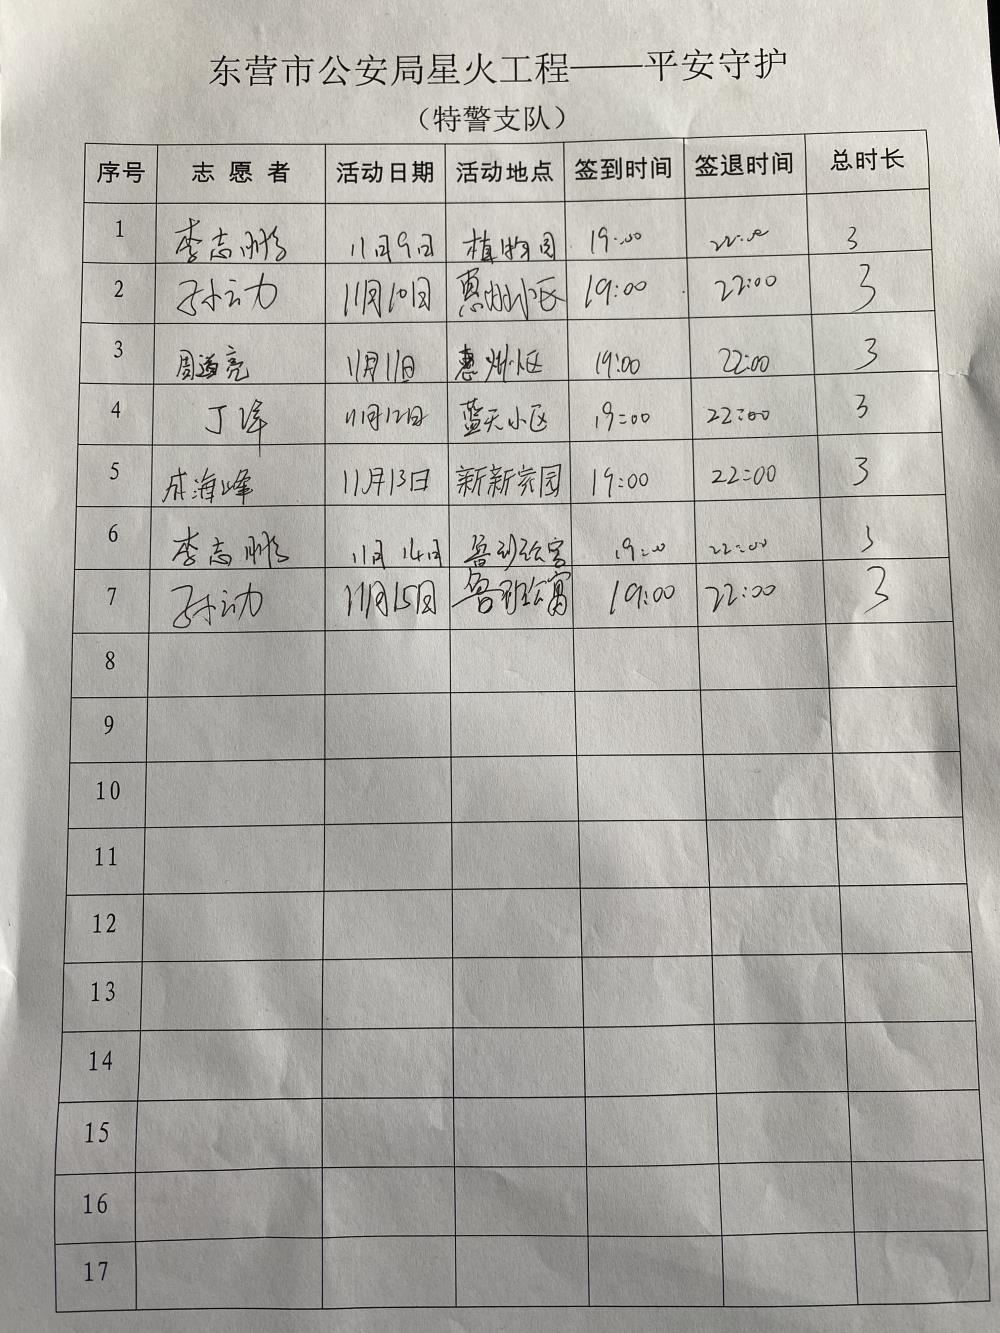 东营市公安局星火工程——平安守护
（特警支队）
序号 志愿者 活动日期 活动地点 签到时间 签退时间 总时长
1 李志鹏 11月9日 植物园 19:00 22:00 3
2 孙云力 11月10日 惠州小区 19:00 22:00 3
3 周道亮 11月11日 惠州小区 19:00 22:00 3
4 丁峰 11月12日 蓝天小区 19:00 22:00 3
5 成海峰 11月13日 新新家园 19:00 22:00 3
6 李志鹏 11月14日 鲁班公寓 19:00 22:00 3
7 孙云力 11月15日 鲁班公寓 19:00 22:00 3
8
9
10
11
12
13
14
15
16
17